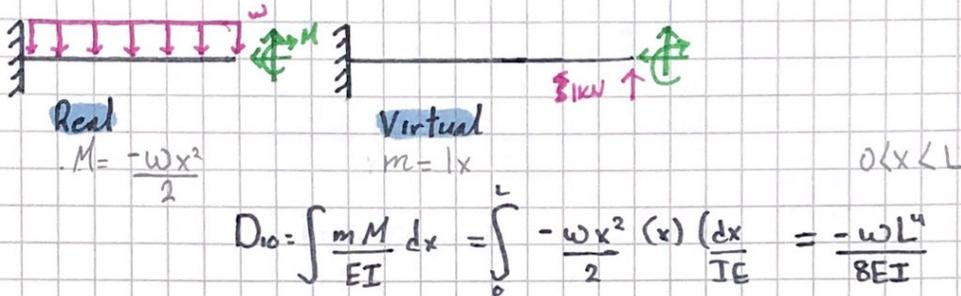 w
M
1kN
Real Virtual
M = -wx²/2 m = 1x 0<x<L
D₁₀ = ∫ mM/EI dx = ∫₀ᴸ -wx²/2 (x) (dx/IE = -wL⁴/8EI